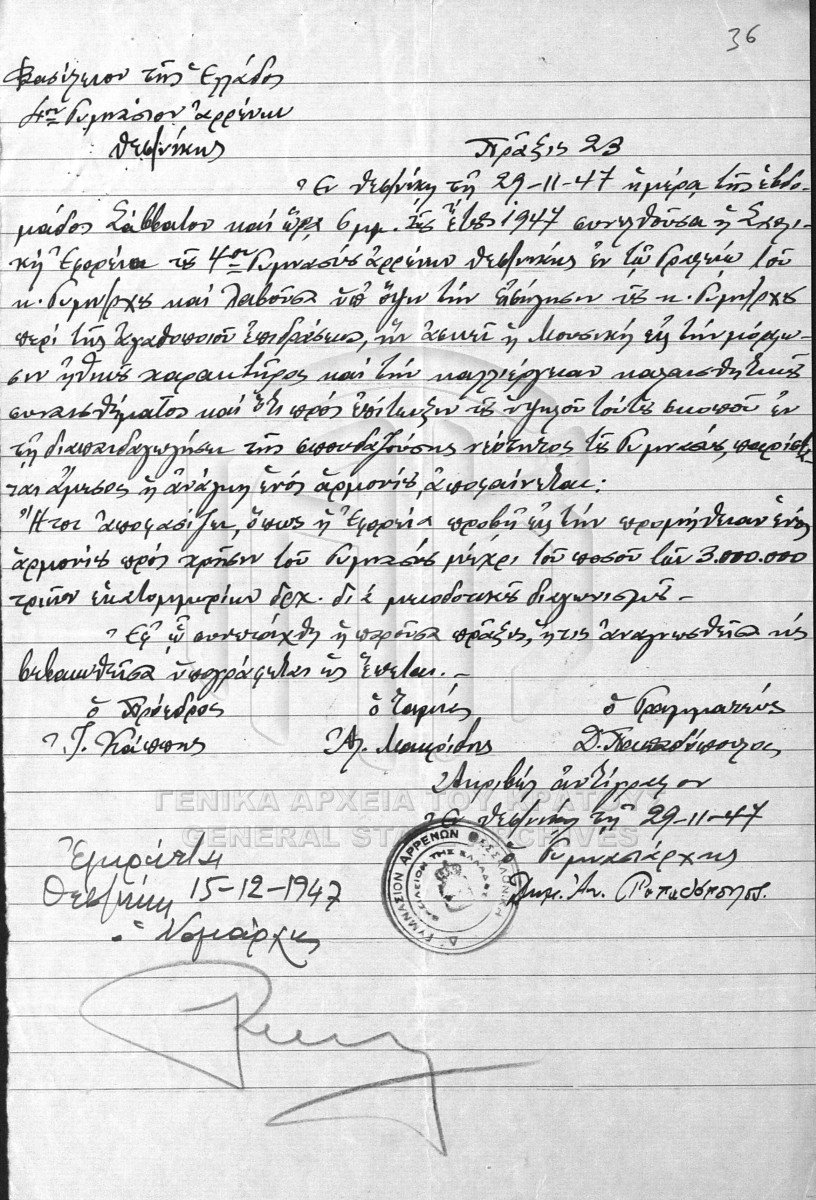 36
Βασίλειον τῆς Ἑλλάδος
4ον Γυμνάσιον Ἀρρένων
Θεσ/νίκης
Πρᾶξις 23
Ἐν Θεσ/νίκῃ τῇ 29-11-47 ἡμέρᾳ τῆς ἑβδο-
μάδος Σάββατον καὶ ὥρᾳ 6 μμ. τοῦ ἔτους 1947 συνελθοῦσα ἡ Σχολι-
κὴ Ἐφορεία τοῦ 4ου Γυμνασίου ἀρρένων Θεσ/νίκης ἐν τῷ Γραφείῳ τοῦ
κ. Γυμν/ρχου καὶ λαβοῦσα ὑπ' ὄψιν τὴν εἰσήγησιν τοῦ κ. Γυμν/ρχου
περὶ τῆς ἀγαθοποιοῦ ἐπιδράσεως, ἣν ἀσκεῖ ἡ Μουσικὴ εἰς τὴν μόρφω-
σιν ἠθικοῦ χαρακτῆρος καὶ τὴν καλλιέργειαν καλαισθητικοῦ
συναισθήματος καὶ ὅτι πρὸς ἐπίτευξιν τοῦ ὑψηλοῦ τούτου σκοποῦ ἐν
τῇ διαπαιδαγωγήσει τῆς σπουδαζούσης νεότητος τοῦ Γυμνασίου, παρίστα-
ται ἄμεσος ἡ ἀνάγκη ἑνὸς ἁρμονίου, ἀποφαίνεται:
Ἤτοι ἀποφασίζει, ὅπως ἡ Ἐφορεία προβῇ εἰς τὴν προμήθειαν ἑνὸς
ἁρμονίου πρὸς χρῆσιν τοῦ Γυμνασίου μέχρι τοῦ ποσοῦ τῶν 3.000.000
τριῶν ἑκατομμυρίων δρχ. διὰ μειοδοτικοῦ διαγωνισμοῦ -
Ἐφ' ᾧ συνετάχθη ἡ παροῦσα πρᾶξις, ἥτις ἀναγνωσθεῖσα καὶ
βεβαιωθεῖσα ὑπογράφεται ὡς ἕπεται. -
ὁ Πρόεδρος ὁ Ταμίας ὁ Γραμματεύς
Γ. Κάππης Ἀλ. Μακρίδης Δ. Παπαδόπουλος
Ἀκριβὲς ἀντίγραφον
Ἐν Θεσ/νίκῃ τῇ 29-11-47
ὁ Γυμνασιάρχης
Δημ. Ἀν. Παπαδόπουλος
ΓΕΝΙΚΑ ΑΡΧΕΙΑ ΤΟΥ ΚΡΑΤΟΥΣ
GENERAL STATE ARCHIVES
Δ' ΓΥΜΝΑΣΙΟΝ ΑΡΡΕΝΩΝ ΘΕΣΣΑΛΟΝΙΚΗΣ
ΒΑΣΙΛΕΙΟΝ ΤΗΣ ΕΛΛΑΔΟΣ
Ἐγκρίνεται
Θεσ/νίκη 15-12-1947
ὁ Νομάρχης